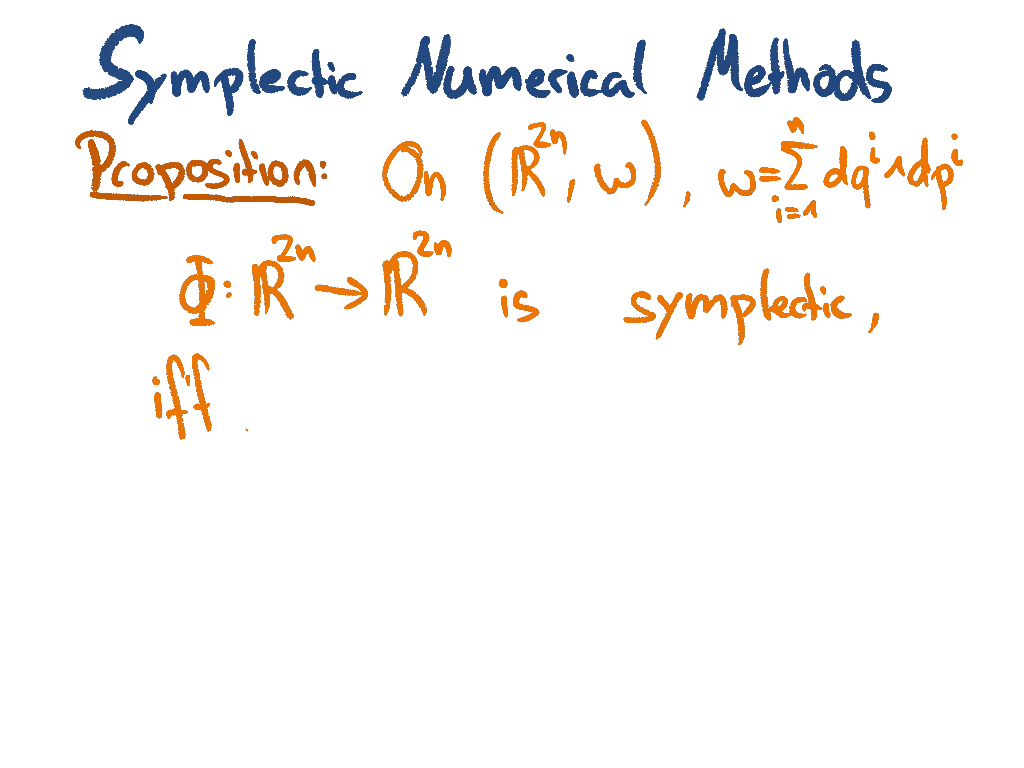 Symplectic Numerical Methods
Proposition: On (ℝ²ⁿ, ω), ω=∑ⁿᵢ₌₁ dqⁱ∧dpⁱ
Φ: ℝ²ⁿ → ℝ²ⁿ is symplectic,
iff